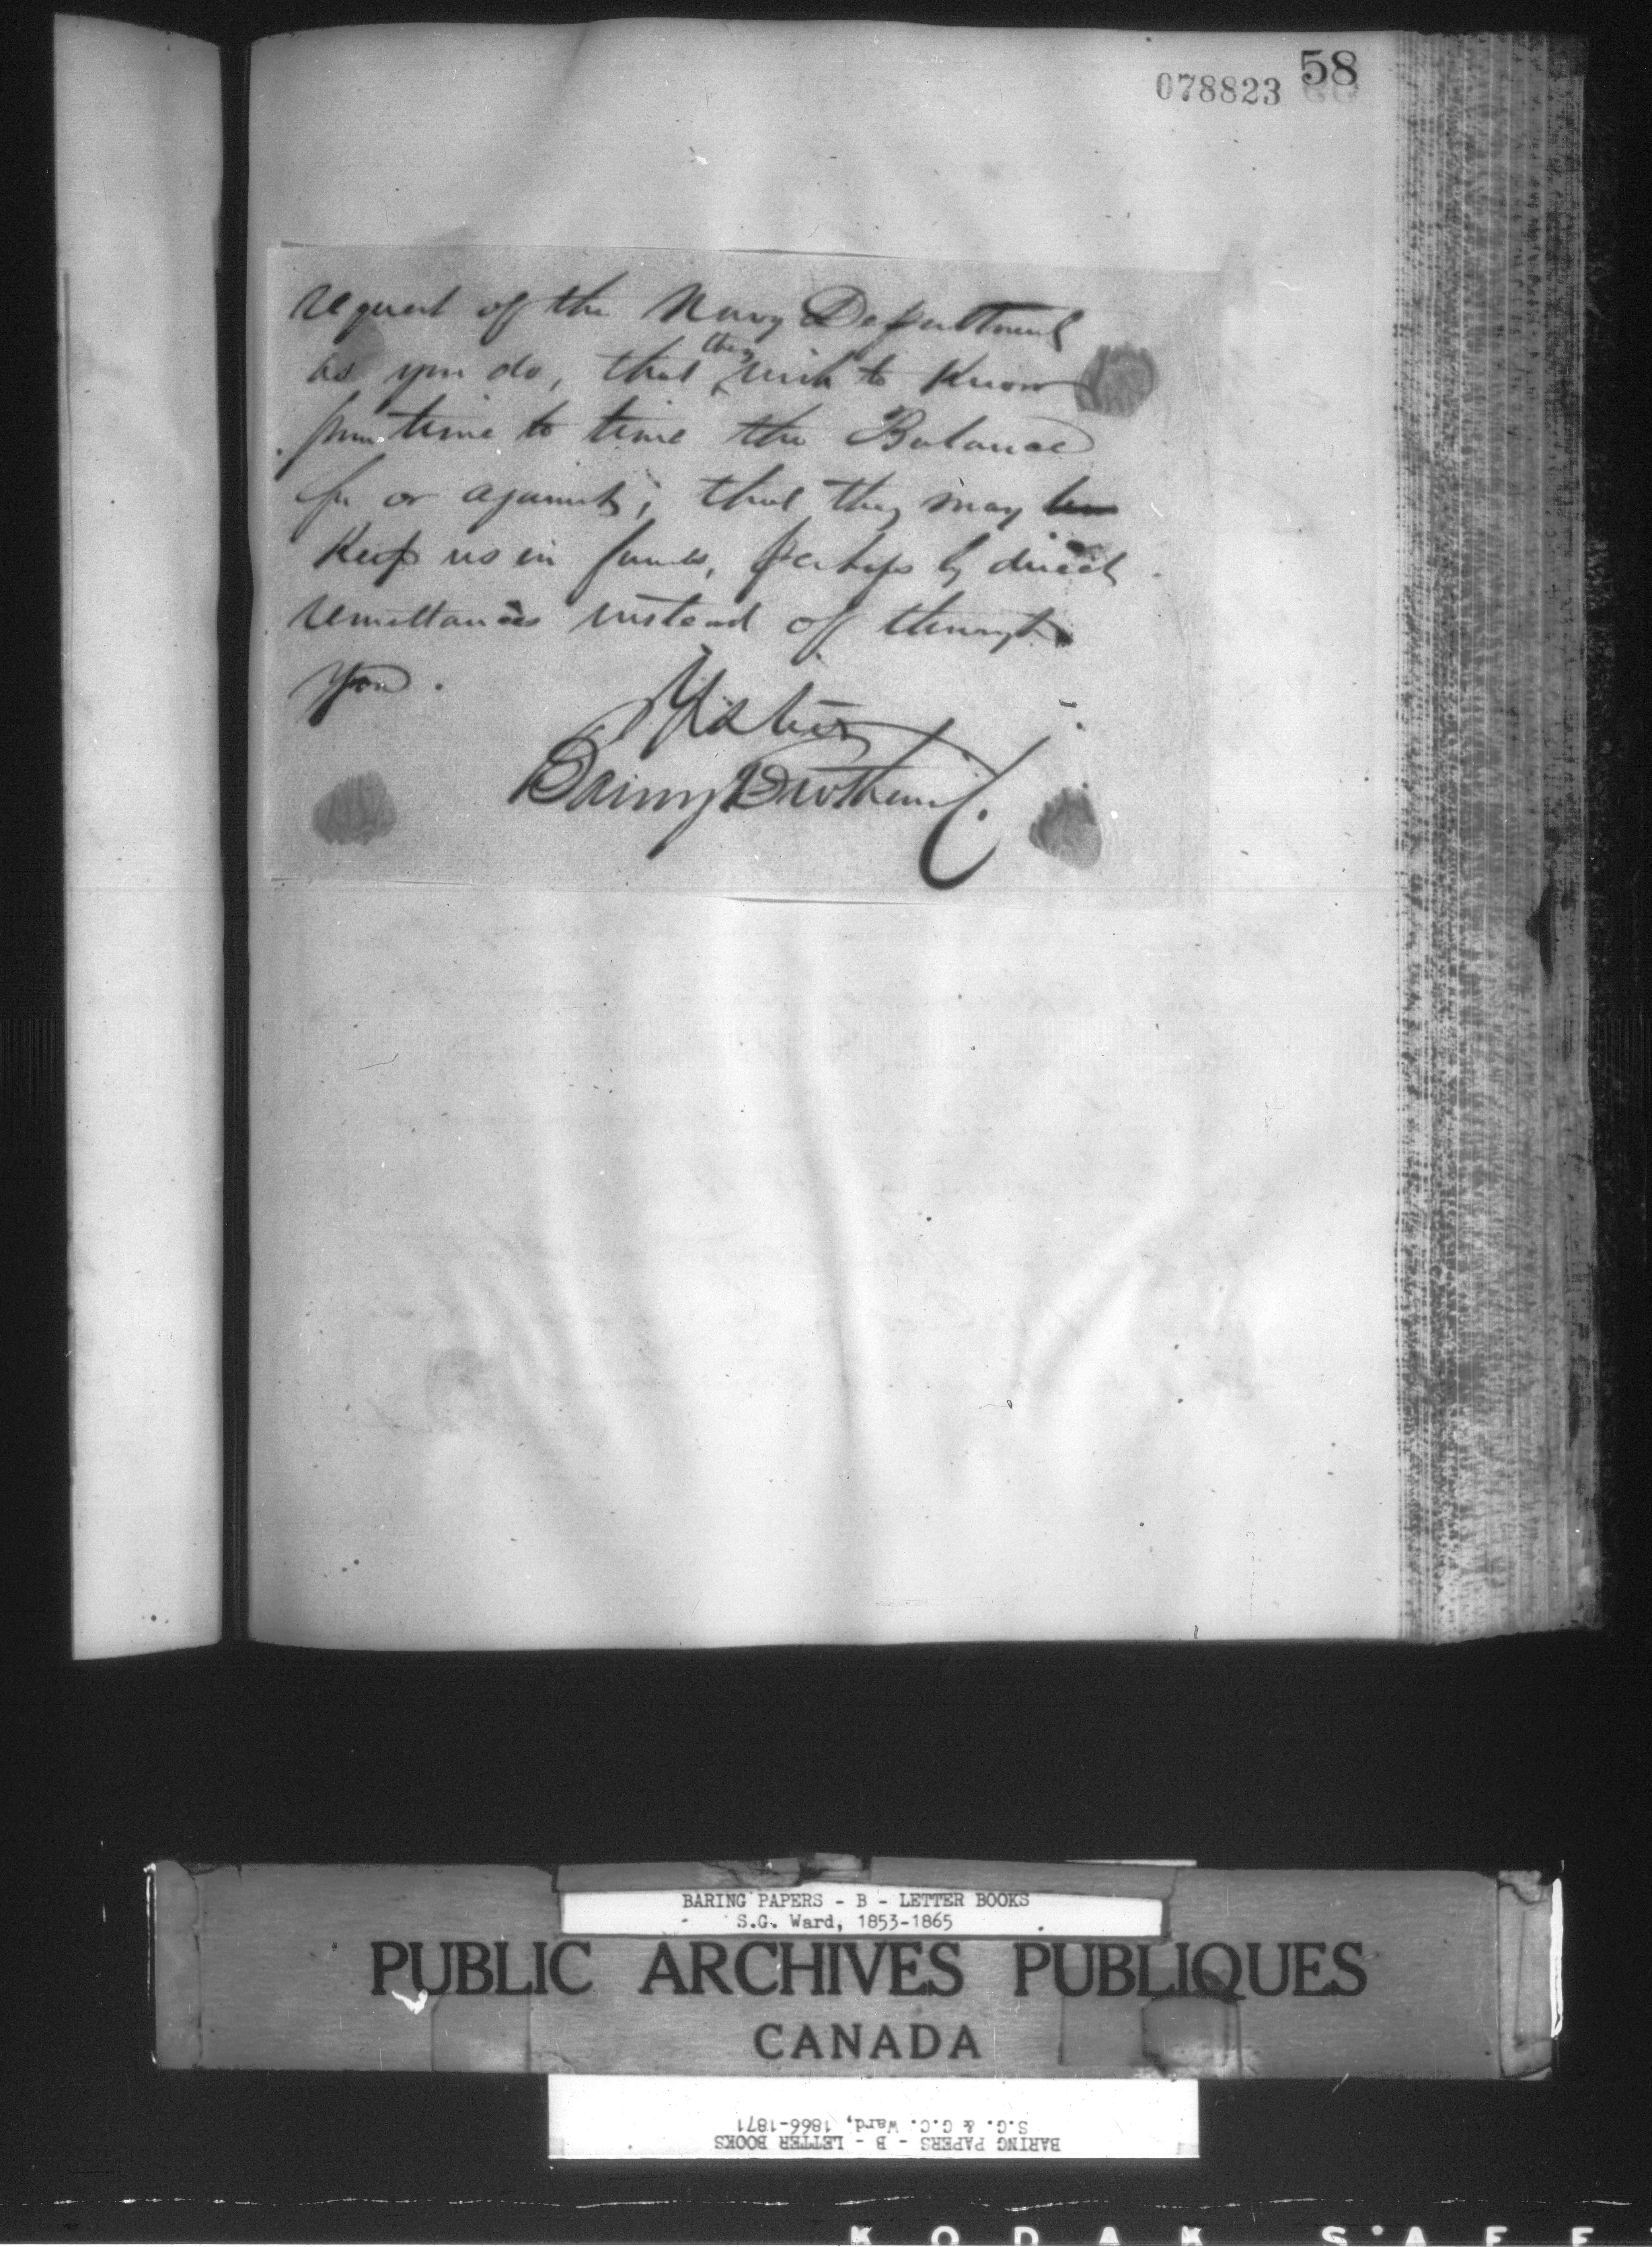 078823 58
request of the Navy Department
as you do, that they wish to Know
from time to time the Balance
for or against, that they may
Keep us in funds, perhaps by direct
remittances instead of through
you.
Baring Brothers
BARING PAPERS - B - LETTER BOOKS
S.G. Ward, 1853-1865
PUBLIC ARCHIVES PUBLIQUES
CANADA
S.G. & G.C. Ward, 1866-1871
BARING PAPERS - B - LETTER BOOKS
KODAK SAFE